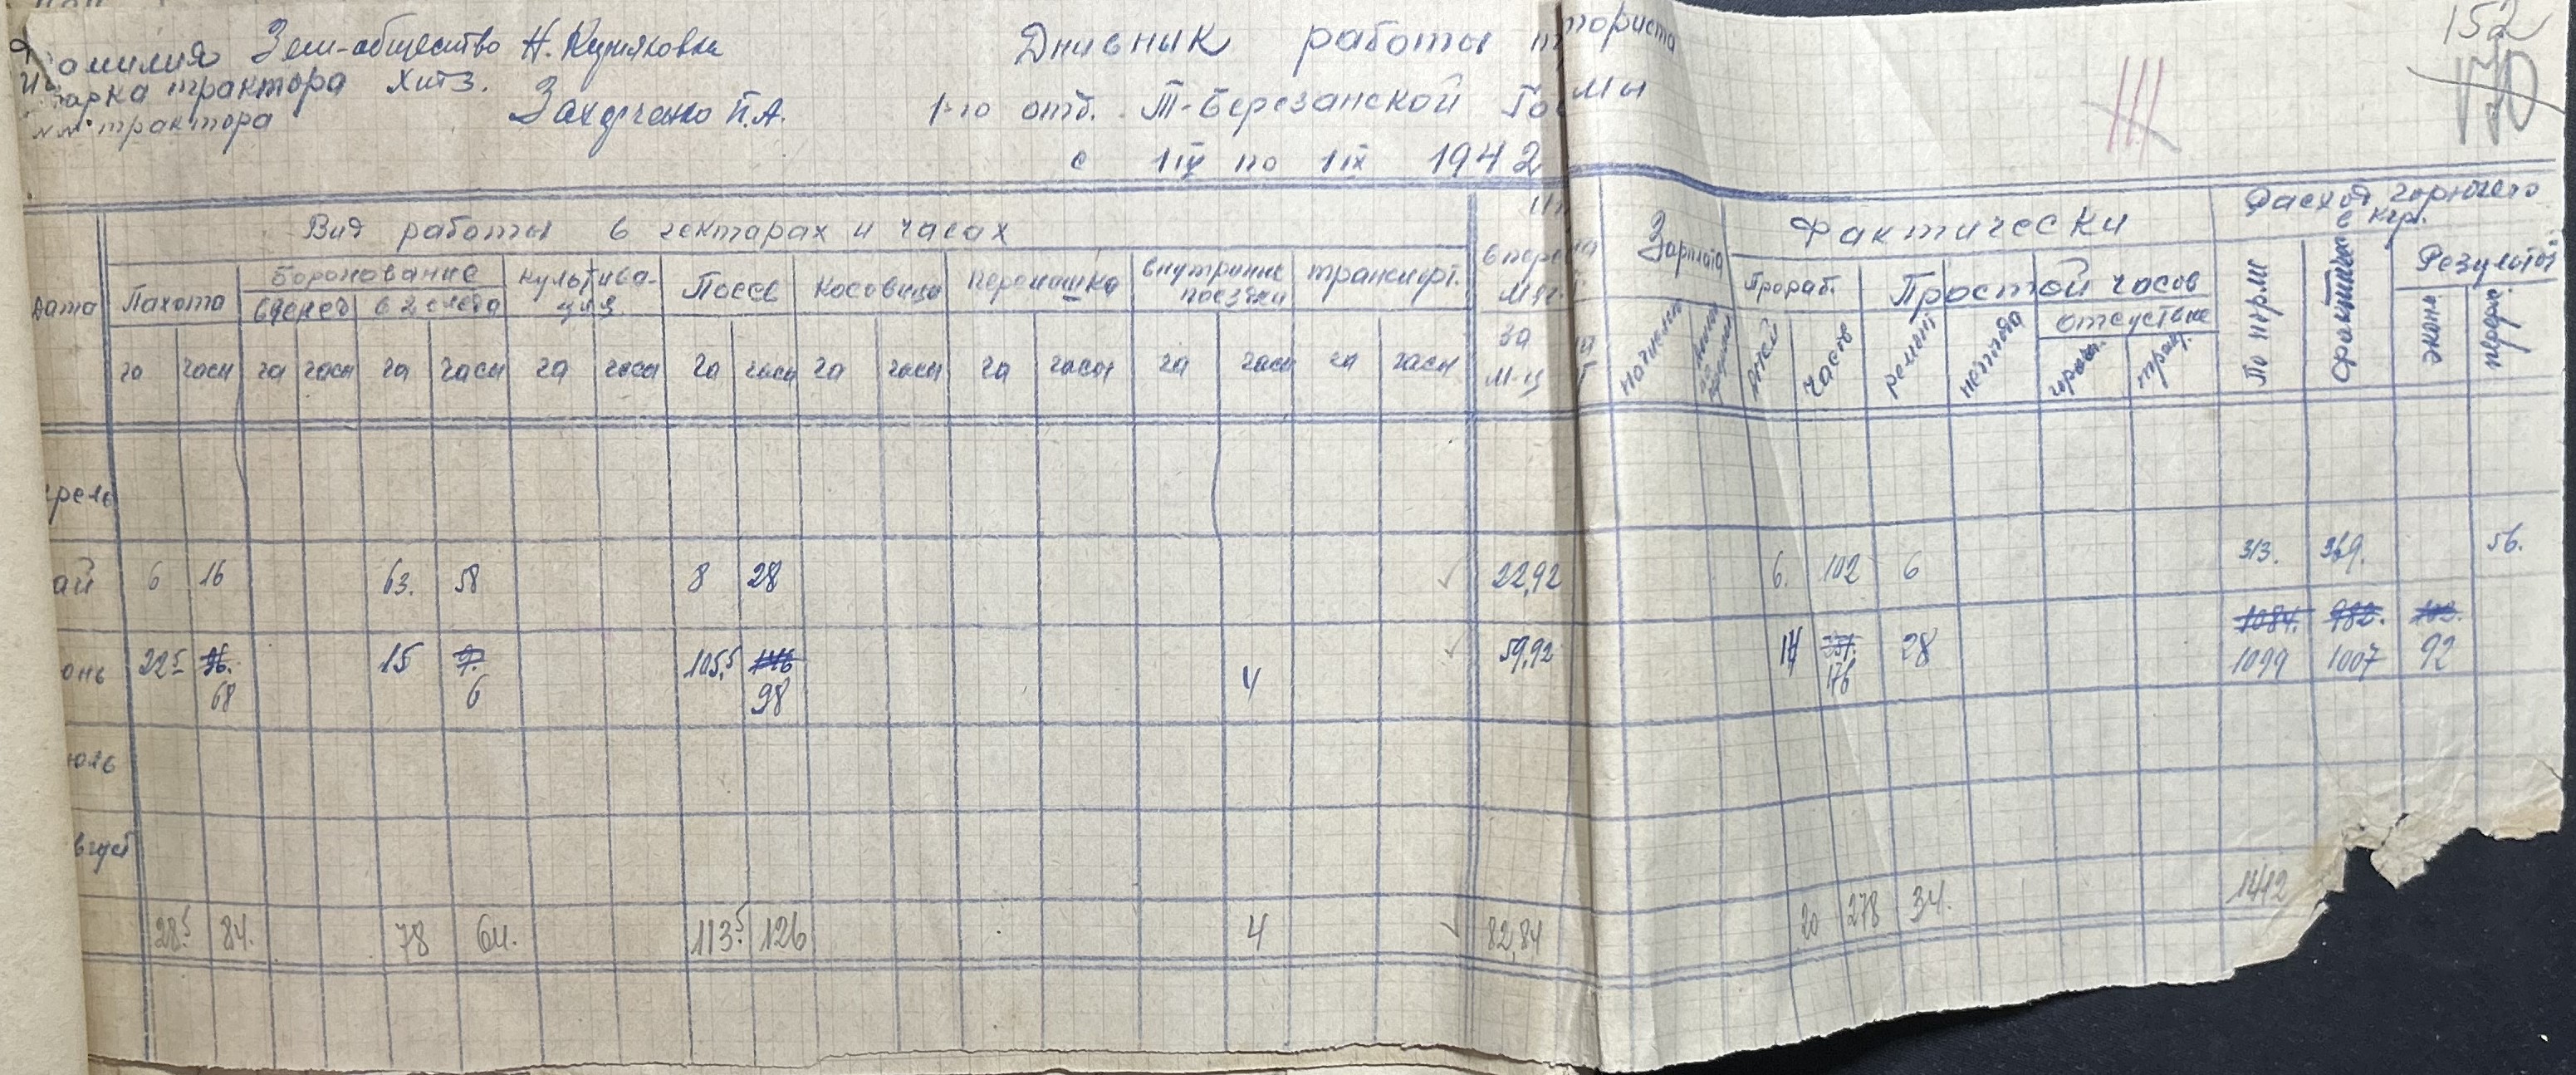 Фамилия Зем-общество Н. Куликовка
Марка трактора ХИТЗ.
№№ трактора
Захарченко П.А.
Дневник работы тракториста
1-го отд. Т-Березанской
с 1 IV по 1 IX 1942
152
170
Вид работы в гектарах и часах
Зарплата
Фактически
Расход горючего в кгр.
Дата
Пахота
Боронование
в 2 следа
Культивация
Посев
Косовица
внутренние поездки
транспорт.
в перев на
за м-ц
Прораб.
Простой часов
отсутствие
По норм
Фактически
Результат
га часы га часы га часы га часы га часы га часы га часы га часы га часы
начислено
дней
часов
ремонт
непогода
эконом
апрель
май 6 16 63. 58 8 28 22,92 6. 102 6 313. 369. 56.
1084. 982. 102.
июнь 22⁵ 96. 15 9. 105,⁵ 146 4 59,92 14 251. 28 1099 1007 92
68 6 98 176
июль
август
28.⁵ 84. 78 64. 113.⁵ 126 4 82,84 20 278 34. 1412